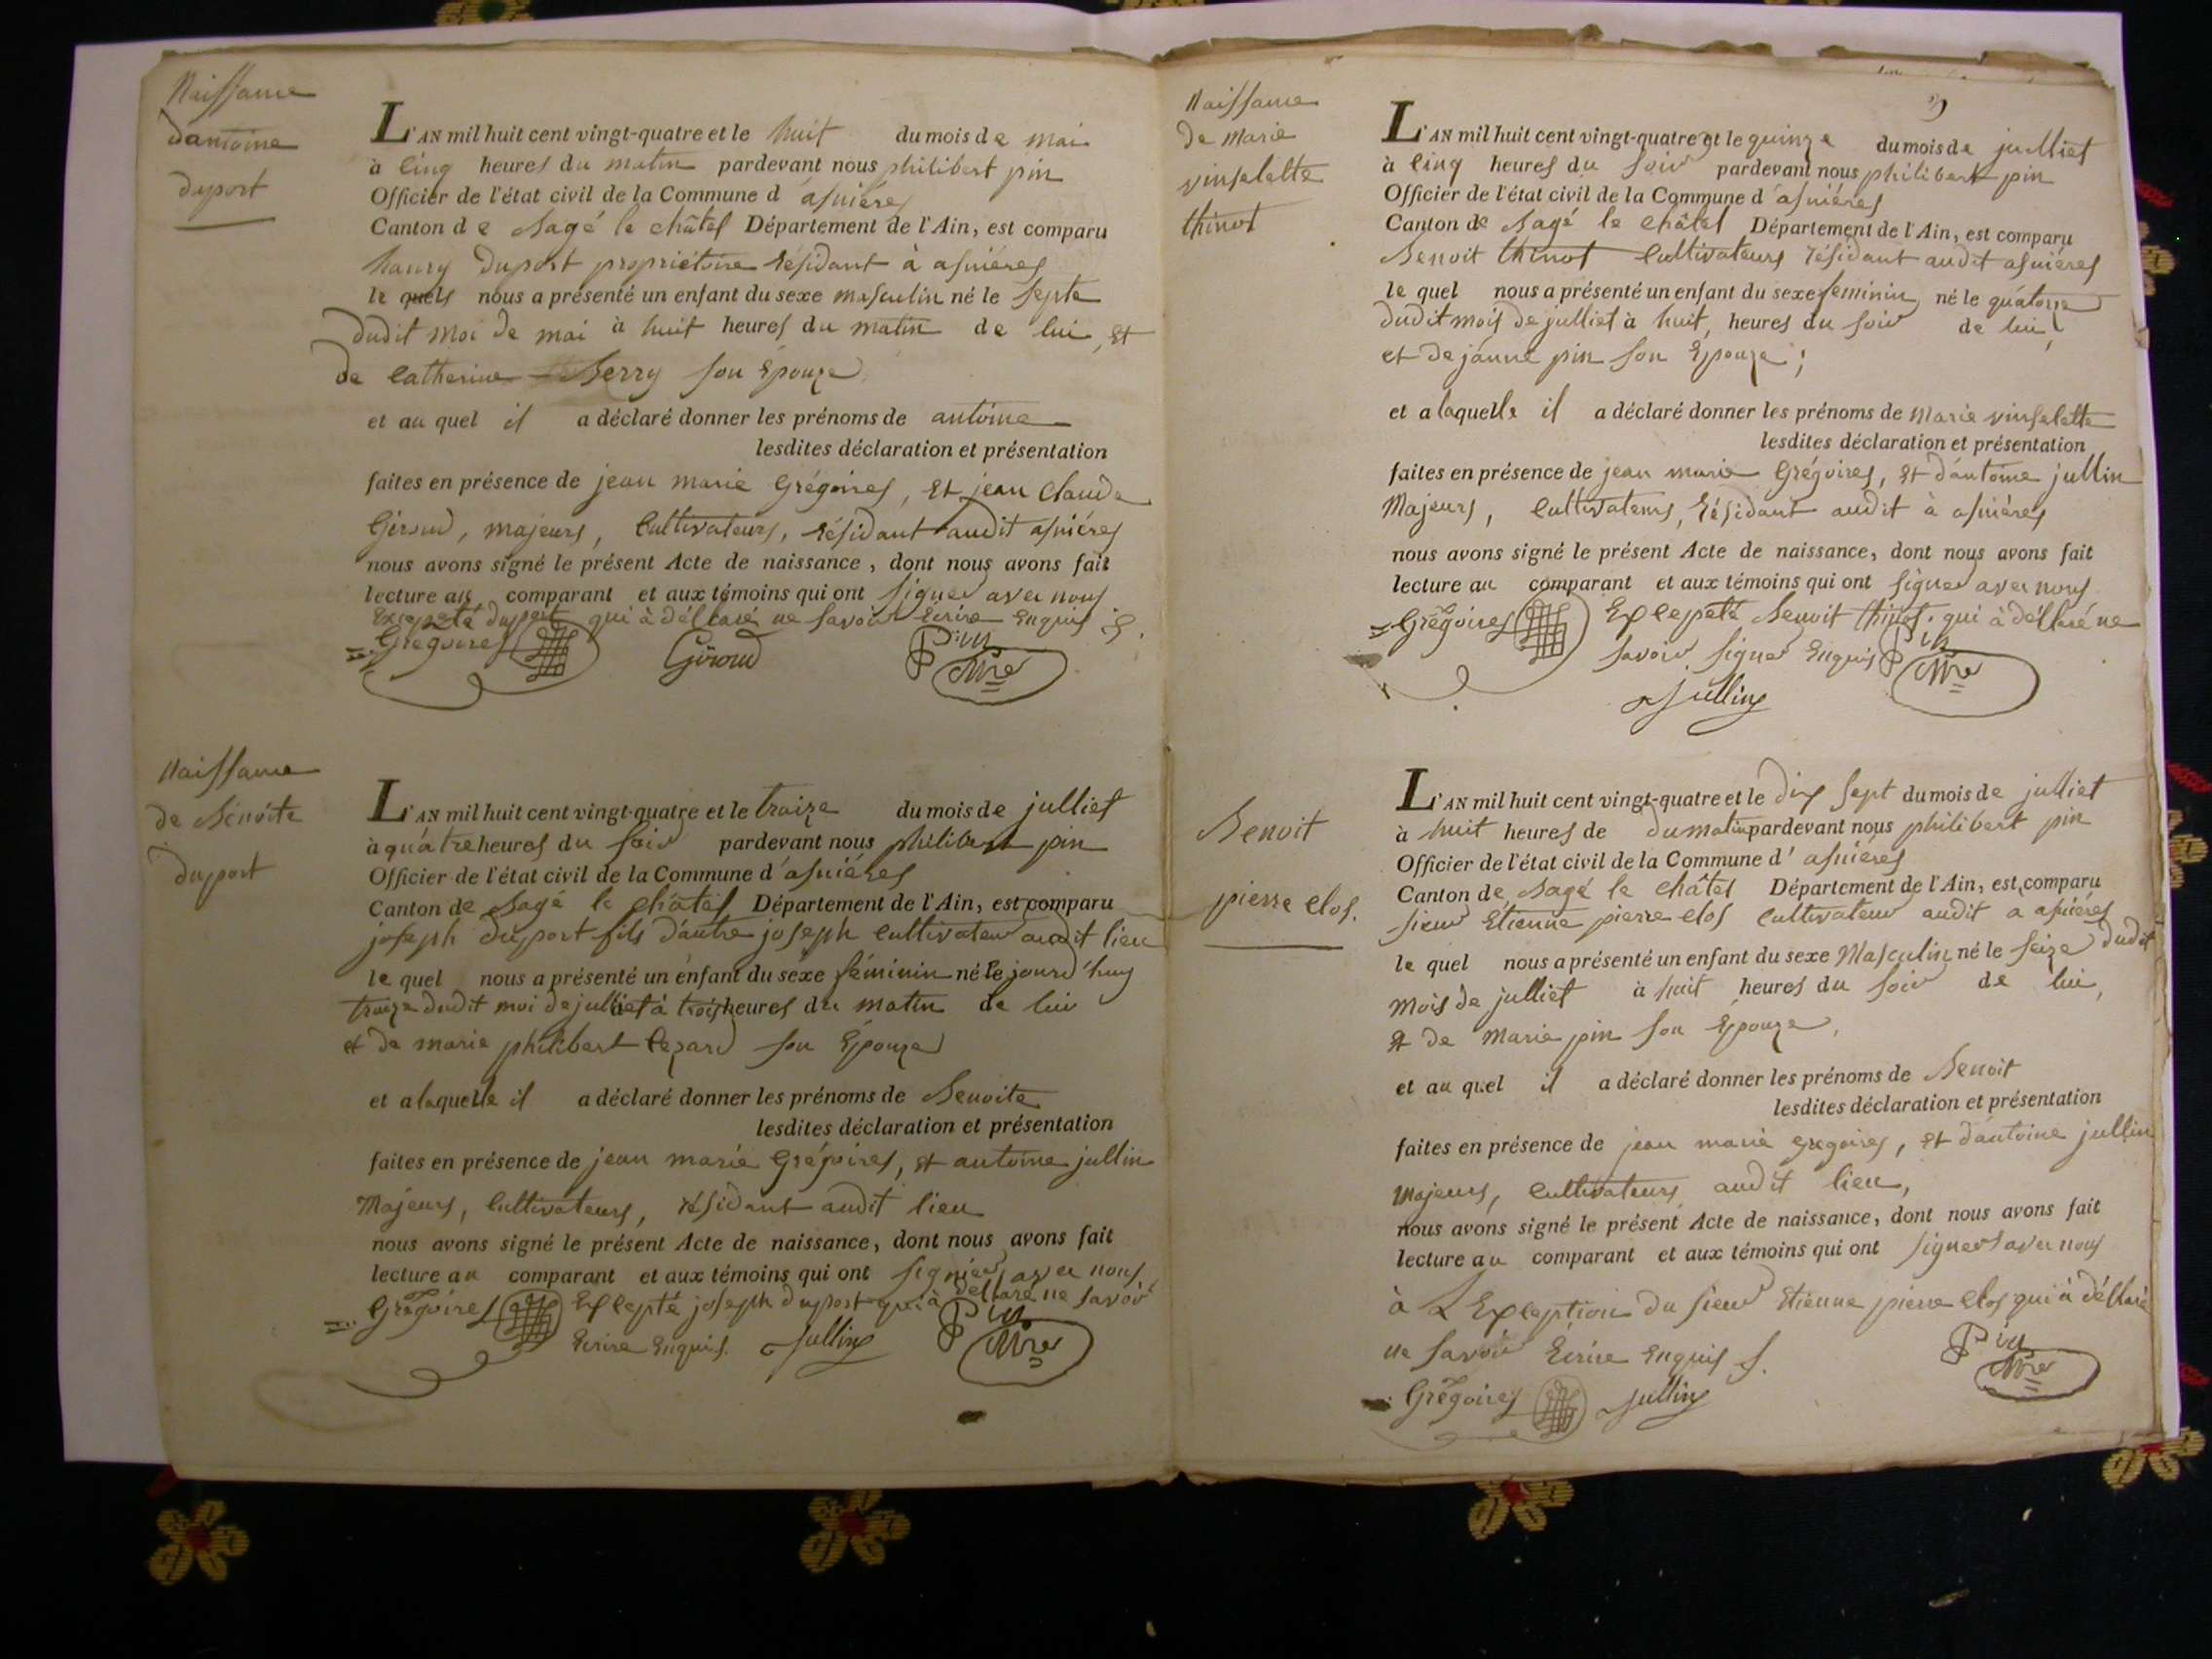 Naissance
dantoine
duport
L'AN mil huit cent vingt-quatre et le huit du mois de mai
à cinq heures du matin pardevant nous philibert pin
Officier de l'état civil de la Commune d'asniéres
Canton de Bagé le châtel Département de l'Ain, est comparu
haury duport propriétaire résidant à asnières
le quels nous a présenté un enfant du sexe masculin né le septe
dudit moi de mai à huit heures du matin de lui, et
de Catherine Berry son épouze
et au quel il a déclaré donner les prénoms de antoine
lesdites déclaration et présentation
faites en présence de jean marie Grégoires, et jean Claude
Giroud, majeurs, Cultivateurs, résidant audit asniéres
nous avons signé le présent Acte de naissance, dont nous avons fait
lecture au comparant et aux témoins qui ont signer avec nous
Excepté duport qui à déllaré ne savoir Ecrire Enquis
Grégoires Giroud Pin Mre
Naissance
de Bénoite
duport
L'AN mil huit cent vingt-quatre et le traize du mois de julliet
à quátre heures du soir pardevant nous philibert pin
Officier de l'état civil de la Commune d'asniéres
Canton de Bagé le châtel Département de l'Ain, est comparu
joseph duport fils d'autre joseph Cultivateur audit lieu
le quel nous a présenté un enfant du sexe féminin né le jourd'huy
traize dudit moi de julliet à trois heures du matin de lui
et de marie philibert Cezard son épouze
et a laquelle il a déclaré donner les prénoms de Benoite
lesdites déclaration et présentation
faites en présence de jean marie Grégoires, et antoine jullin
Majeurs, Cultivateurs, résidant audit lieu
nous avons signé le présent Acte de naissance, dont nous avons fait
lecture au comparant et aux témoins qui ont signer avec nous
Grégoires Excepté joseph duport qui à déllaré ne savoir
Ecrire Enquis. Jullin Pin Mre
9
Naissance
de Marie
vinselette
thinot
L'AN mil huit cent vingt-quatre et le quinze du mois de julliet
à cinq heures du soir pardevant nous philibert pin
Officier de l'état civil de la Commune d'asniéres
Canton de Bagé le châtel Département de l'Ain, est comparu
Benoit thinot Cultivateurs résidant audit asniéres
le quel nous a présenté un enfant du sexe feminin né le quatorze
dudit mois de julliet à huit heures du soir de lui,
et de jánne pin son Epouze;
et a laquelle il a déclaré donner les prénoms de Marie vinselette
lesdites déclaration et présentation
faites en présence de jean marie Grégoires, et d'antoine jullin
Majeurs, Cultivateurs, résidant audit à asnières
nous avons signé le présent Acte de naissance, dont nous avons fait
lecture au comparant et aux témoins qui ont signer avec nous
Grégoires Excepeté Benoit thinot qui à déllaré ne
savoir signer Enquis Pin Mre
Jullin
Benoit
pierre clos.
L'AN mil huit cent vingt-quatre et le dix sept du mois de julliet
à huit heures de du matin pardevant nous philibert pin
Officier de l'état civil de la Commune d'asniéres
Canton de Bagé le châtel Département de l'Ain, est comparu
sieur Etienne pierre clos Cultivateur audit à asniéres
le quel nous a présenté un enfant du sexe Masculin né le seize dudit
mois de julliet à huit heures du soir de lui,
et de Marie pin son Epouze,
et au quel il a déclaré donner les prénoms de Benoit
lesdites déclaration et présentation
faites en présence de jean marie gregoires, et d'antoine jullin
majeurs, Cultivateurs audit lieu,
nous avons signé le présent Acte de naissance, dont nous avons fait
lecture au comparant et aux témoins qui ont signer avec nous
à L'Exception du sieur Etienne pierre clos qui à déllaré
ne savoir Ecrire Enquis
Pin Mre
Grégoires Jullin